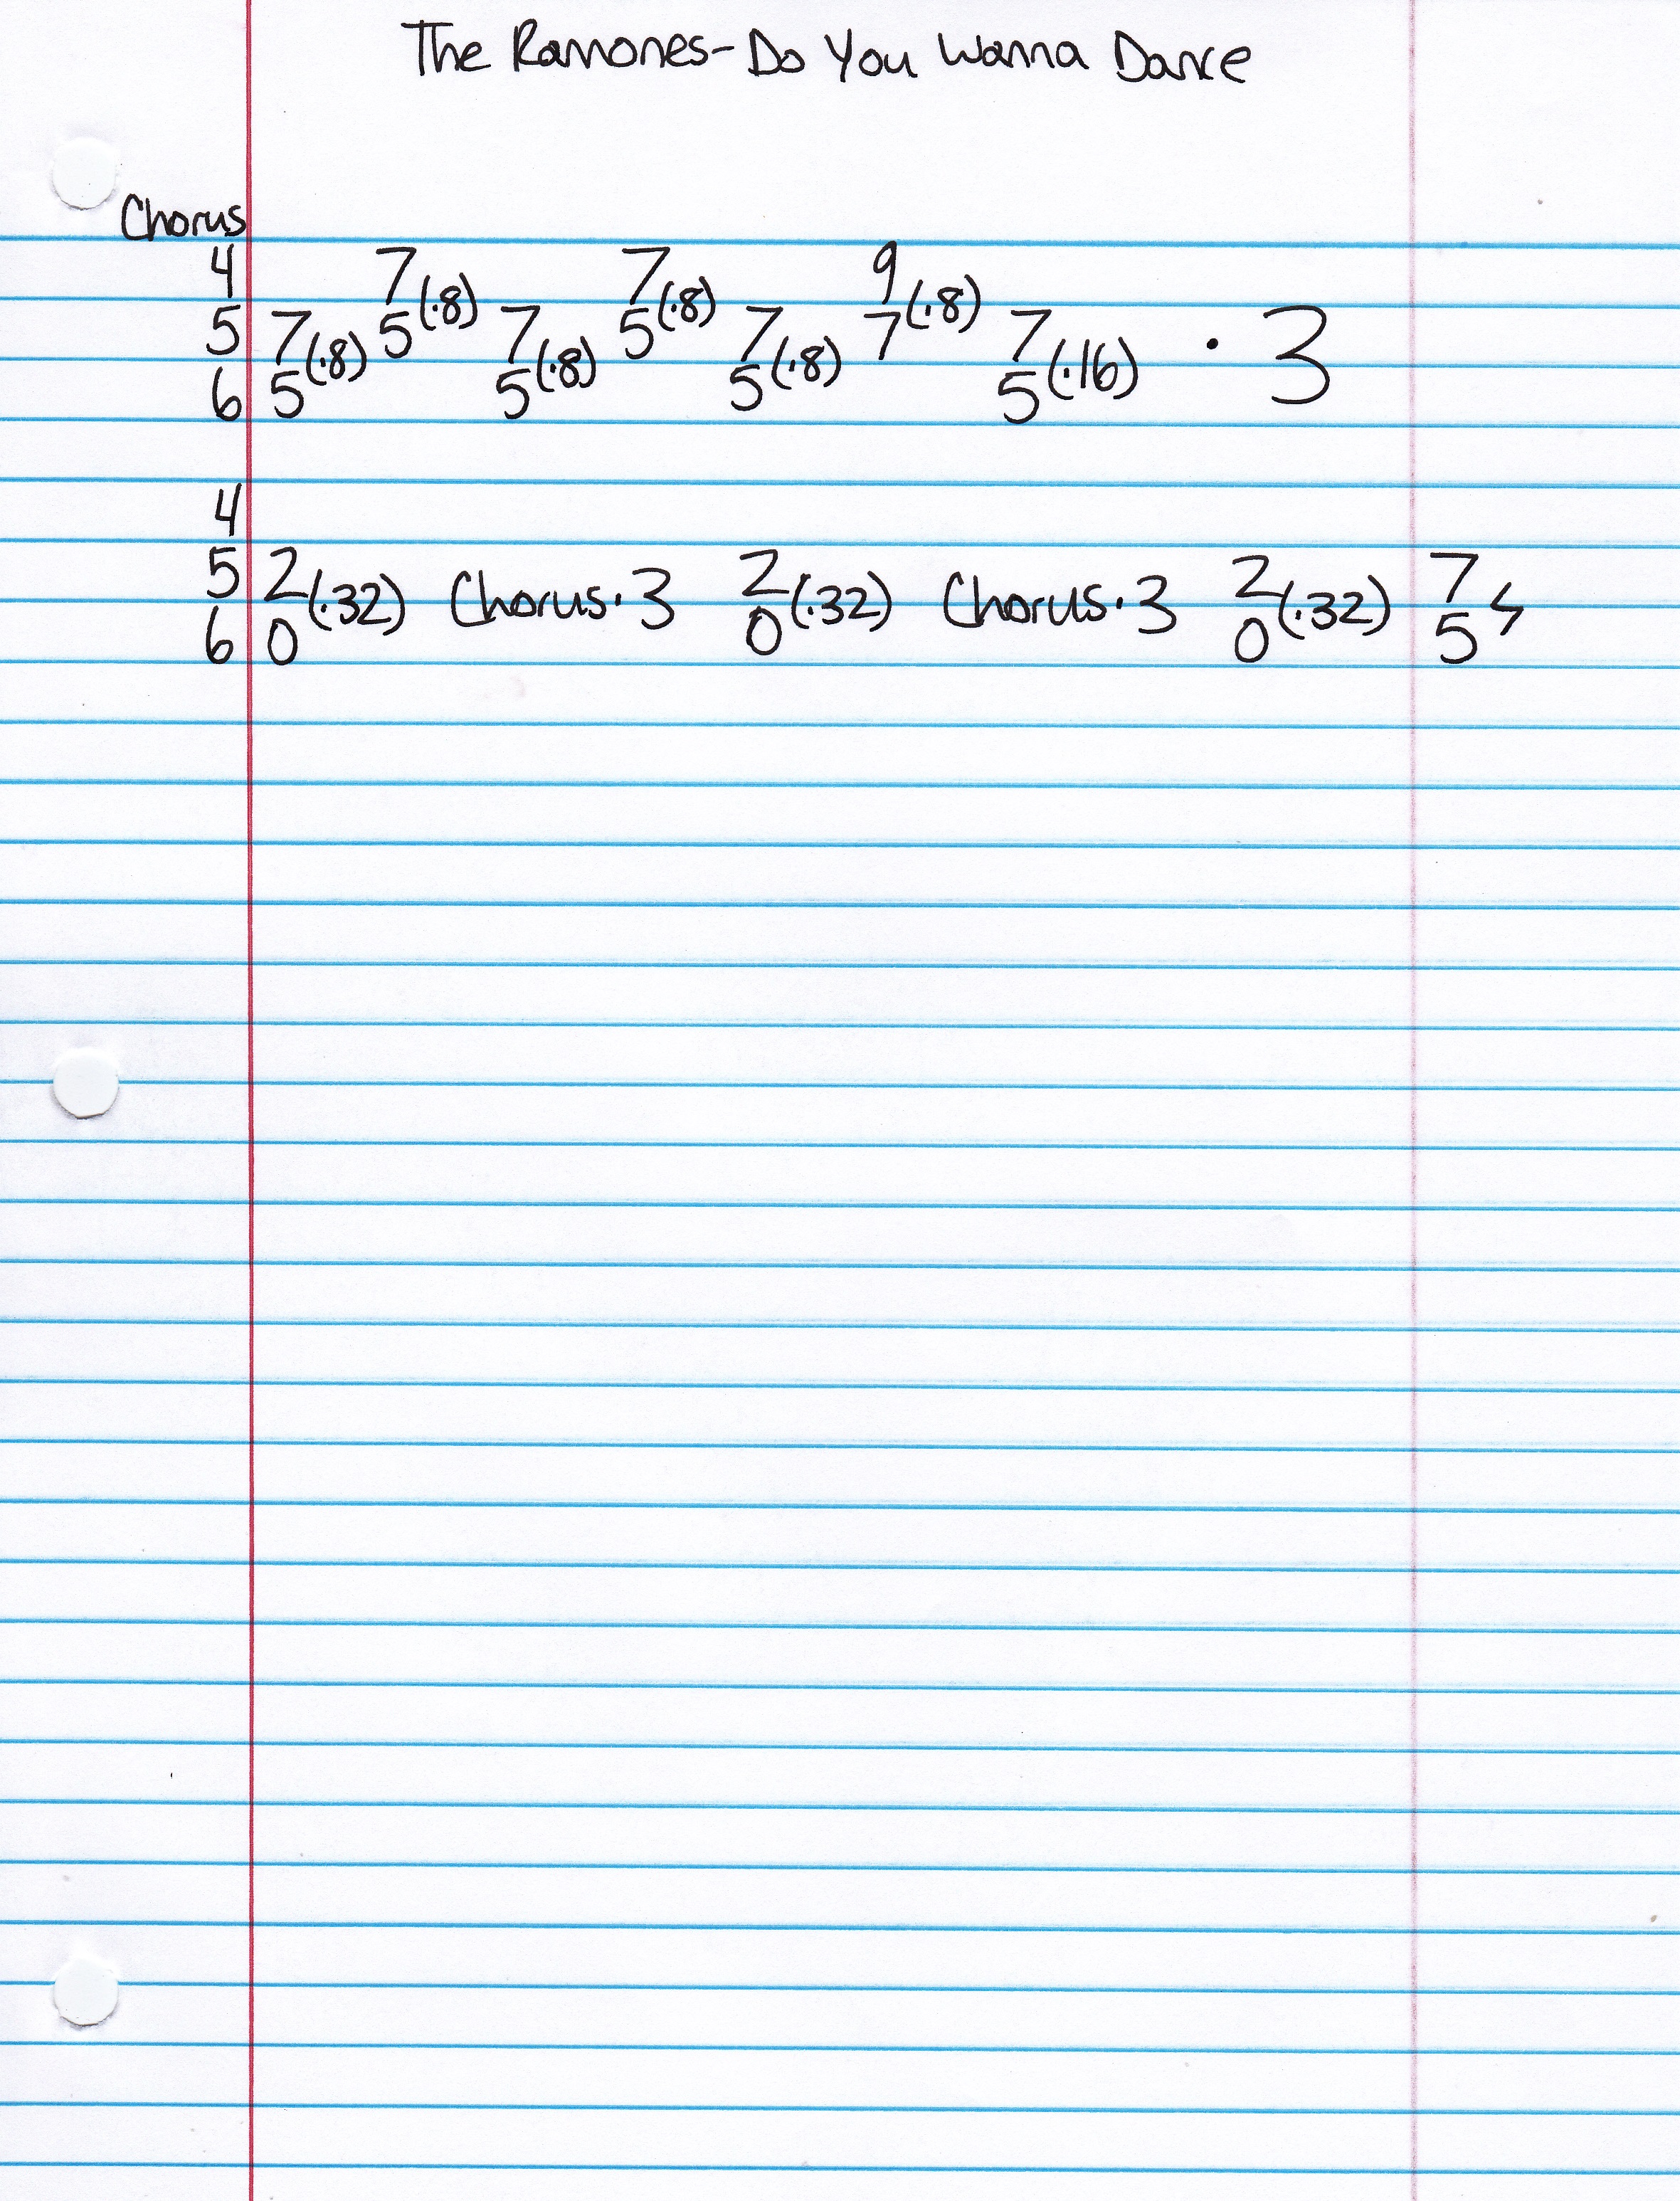 The Ramones-Do You Wanna Dance
Chorus
4 7(·8) 7(·8) 9(·8)
5 7(·8) 5 7(·8) 5 7(·8) 7 7(·16) · 3
6 5 5 5 5
4
5 2(·32) Chorus·3 2(·32) Chorus·3 2(·32) 7
6 0 0 0 5